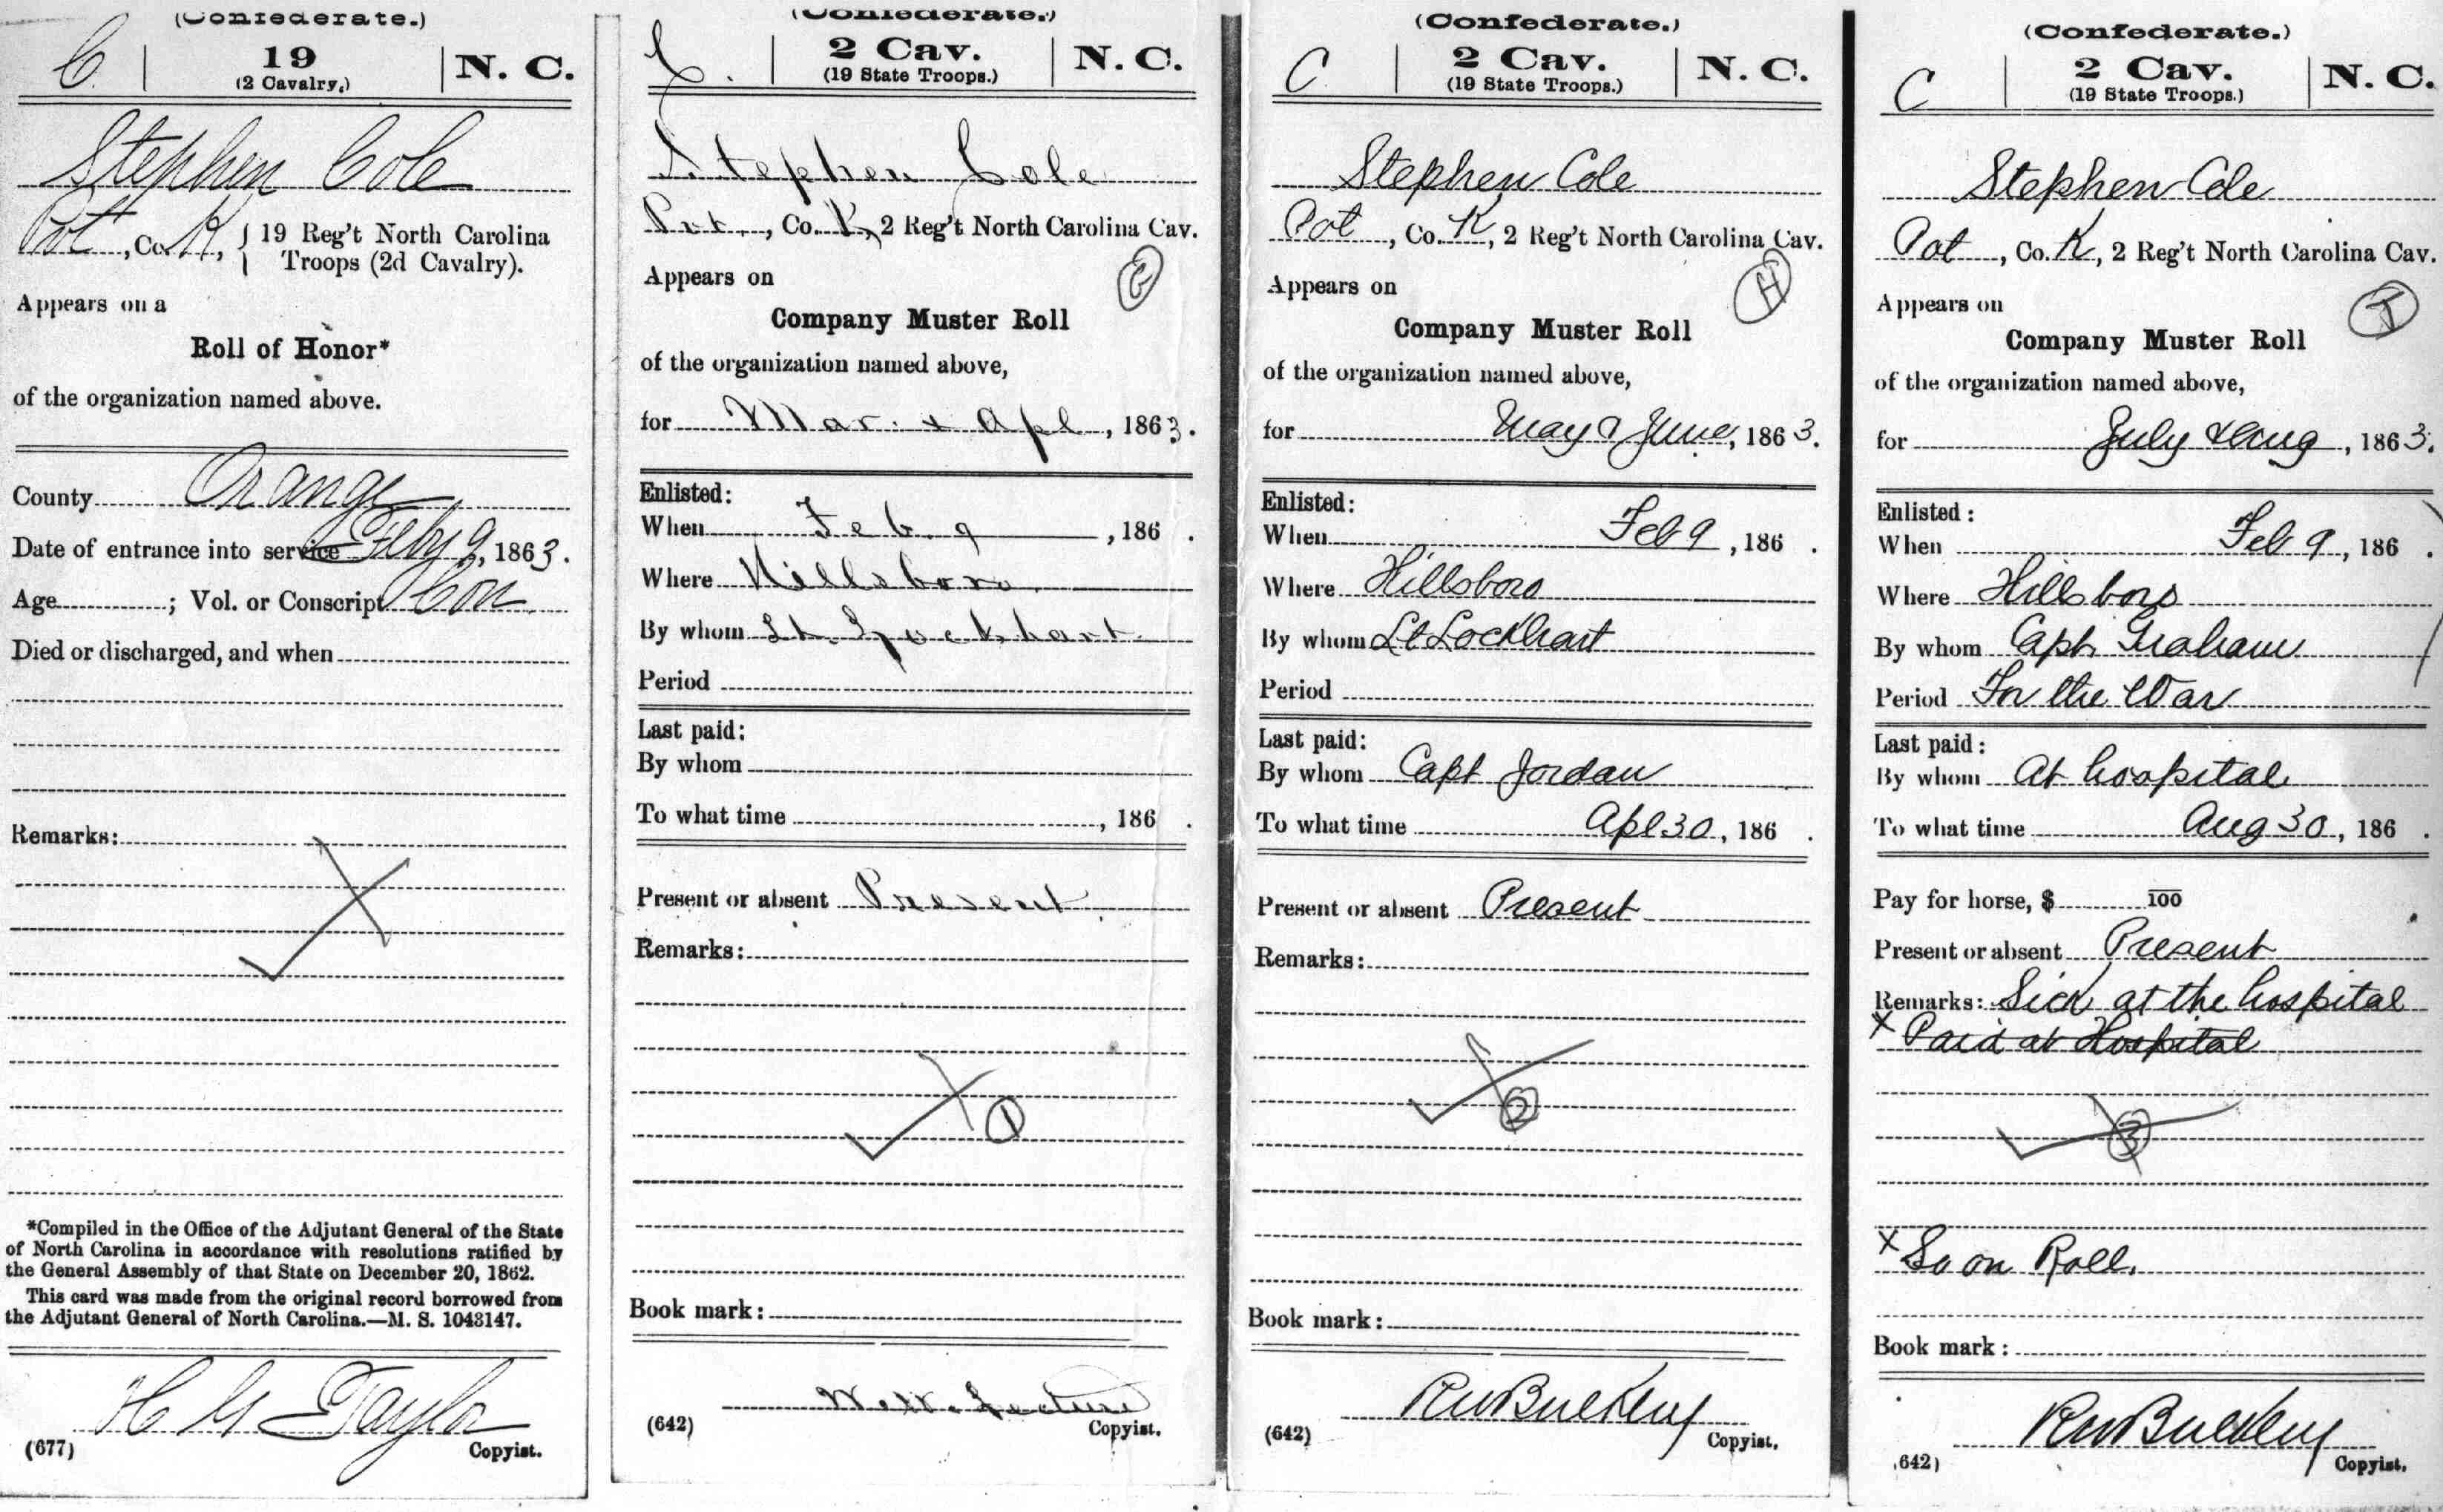 (Confederate.)
C. | 19 | N. C.
(2 Cavalry.)
Stephen Cole
Pvt, Co. K, { 19 Reg't North Carolina
Troops (2d Cavalry).
Appears on a
Roll of Honor*
of the organization named above.
County Orange
Date of entrance into service Feby 9, 1863.
Age ; Vol. or Conscript Con
Died or discharged, and when
Remarks:
*Compiled in the Office of the Adjutant General of the State
of North Carolina in accordance with resolutions ratified by
the General Assembly of that State on December 20, 1862.
This card was made from the original record borrowed from
the Adjutant General of North Carolina.—M. S. 1043147.
Taylor
(677) Copyist.
(Confederate.)
C. | 2 Cav. | N. C.
(19 State Troops.)
Stephen Cole
Pvt., Co. K, 2 Reg't North Carolina Cav.
Appears on G
Company Muster Roll
of the organization named above,
for Mar. & Apl, 1863.
Enlisted:
When Feb. 9, 186 .
Where Hillsboro
By whom Lt. Lockhart
Period
Last paid:
By whom
To what time , 186 .
Present or absent Present
Remarks:
1
Book mark:
(642) Copyist.
(Confederate.)
C. | 2 Cav. | N. C.
(19 State Troops.)
Stephen Cole
Pvt, Co. K, 2 Reg't North Carolina Cav.
Appears on H
Company Muster Roll
of the organization named above,
for May & June, 1863.
Enlisted:
When Feb 9, 186 .
Where Hillsboro
By whom Lt Lockhart
Period
Last paid:
By whom Capt Jordan
To what time Apl 30, 186 .
Present or absent Present
Remarks:
2
Book mark:
RW Buckley
(642) Copyist.
(Confederate.)
C | 2 Cav. | N. C.
(19 State Troops.)
Stephen Cole
Pvt, Co. K, 2 Reg't North Carolina Cav.
Appears on I
Company Muster Roll
of the organization named above,
for July & Aug, 1863.
Enlisted:
When Feb 9, 186 .
Where Hillsboro
By whom Capt Graham
Period For the War
Last paid:
By whom At hospital
To what time Aug 30, 186 .
Pay for horse, $ 100
Present or absent Present
Remarks: Sick at the hospital
x Paid at Hospital
3
x So on Roll.
Book mark:
RW Buckley
(642) Copyist.